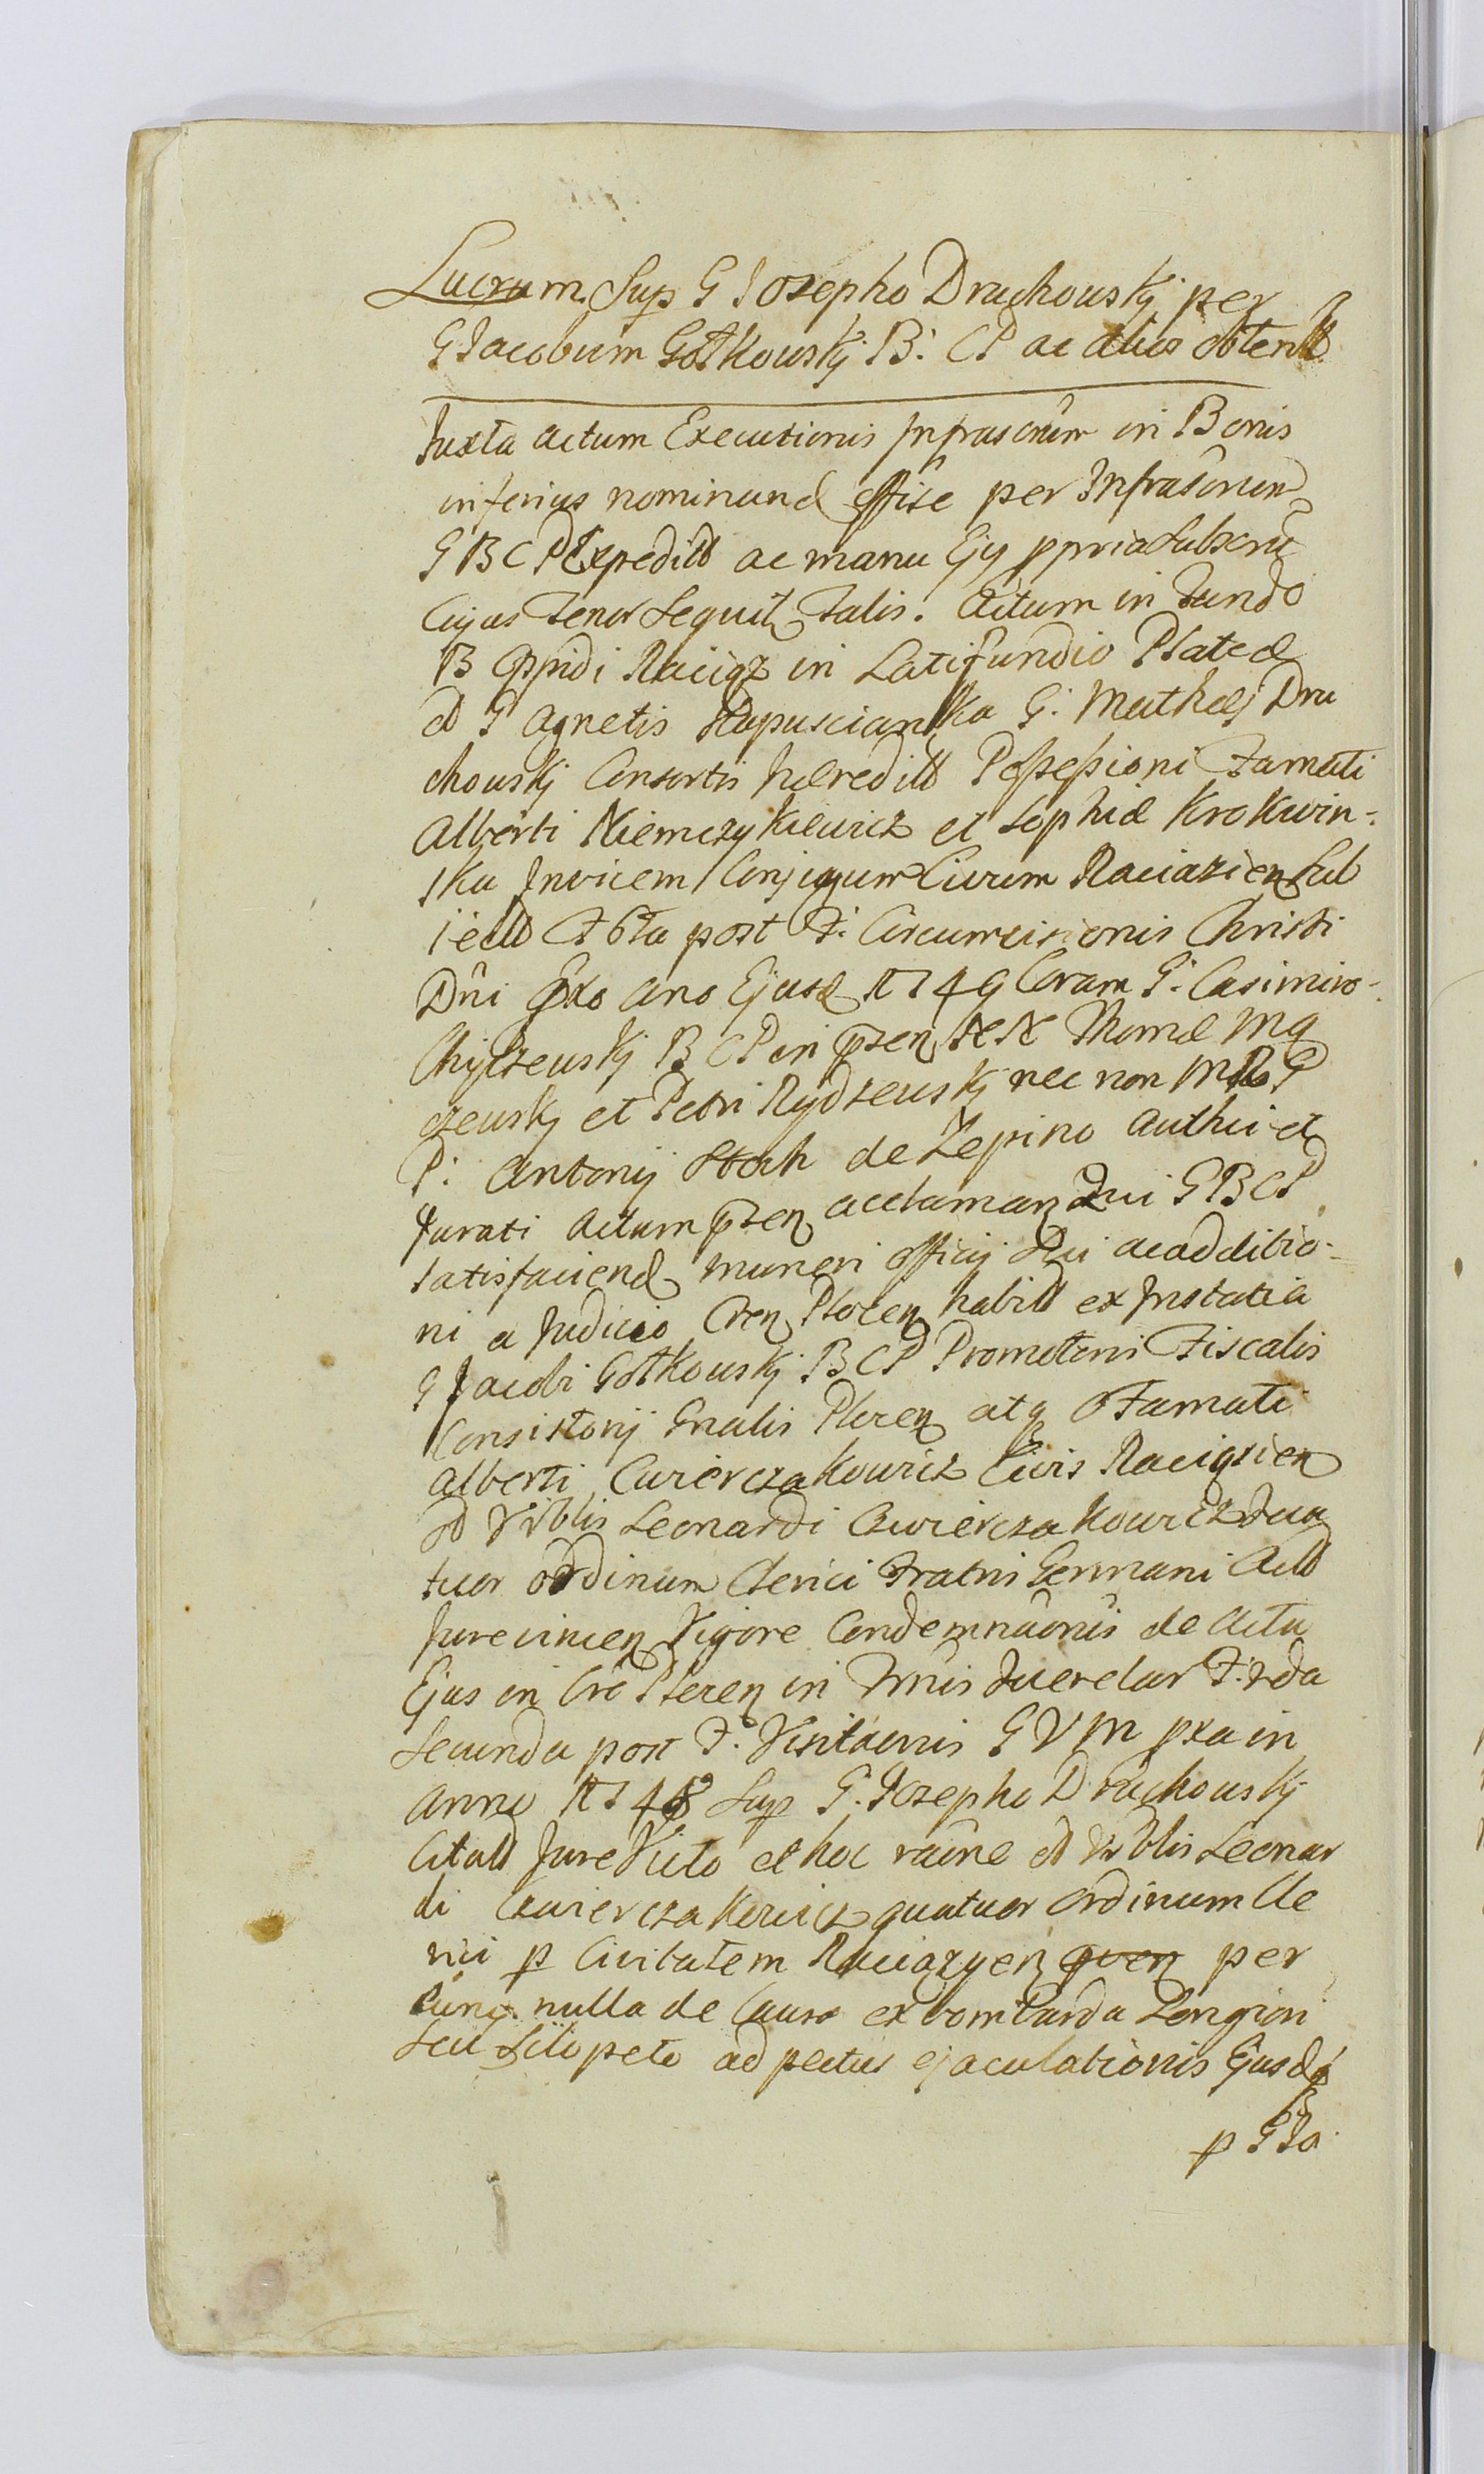 Lucrum Sup G Iozepho Druchowskj per
G Jacobum Gołkowskj B: CP ac alios obtent
Juxta actum Executionis Infrascrum in Bonis
inferius nominand offise per Infrascrum
G B C P Expedit ac manu Ejs ppria Subscrit
Cujus Tenor Sequit Talis. Actum in Fundo
B Oppidi Raciąz in Latifundio Platea
et G Agnetis Kapuscianka G: Mathei Dru
chowskj Consortis haeredit Possessioni Famati
Alberti Niemczykiewicz et Sophiæ Krokwin-
ska Invicem Conjugum Civium Raciazien Sub
iect Fta post F: Circumcisionis Christi
Dni Pxo Ano Ejusd 1749 Coram G: Casimiro
Chylzewskj B C P in pzen N N Thomæ Mą
czewskj et Petri Rydzewskj nec non MR G
P: Antonij Stoch de Zepino Authci et
Jurati Actum pzen acclaman Qui G B C P
satisfaciend muneri officij Sui ac additio-
ni a Judicio Cren Plocen habit ex Instatia
G Jacobi Gołkowskj B C P Promotoris Fiscalis
Consistorij Gnalis Plocen atq Famati
Alberti Cwierczakowicz Civis Raciązien
et Vrblis Leonardi Cwierczakowicz Qua
tuor ordinum Clerici Fratris Germani Act
Jurevincen Vigore Condemnaonis de Actu
Ejus in Cro Plocen in Trnis Querelar F: 2da
Secunda post F: Visitaonis G V M pxa in
anno 1748 Sup G: Iozepho Druchowskj
Citatt Jure Victo et hoc raone et Vrblis Leonar
di Cwierczakowicz quatuor Ordinum Cle
rici p Civitatem Raciązyen quen per
cunq nulla de Causa ex bombarda Longiori
seu Sclopeto ad pectus ejaculationis Ejusd
p G Jo